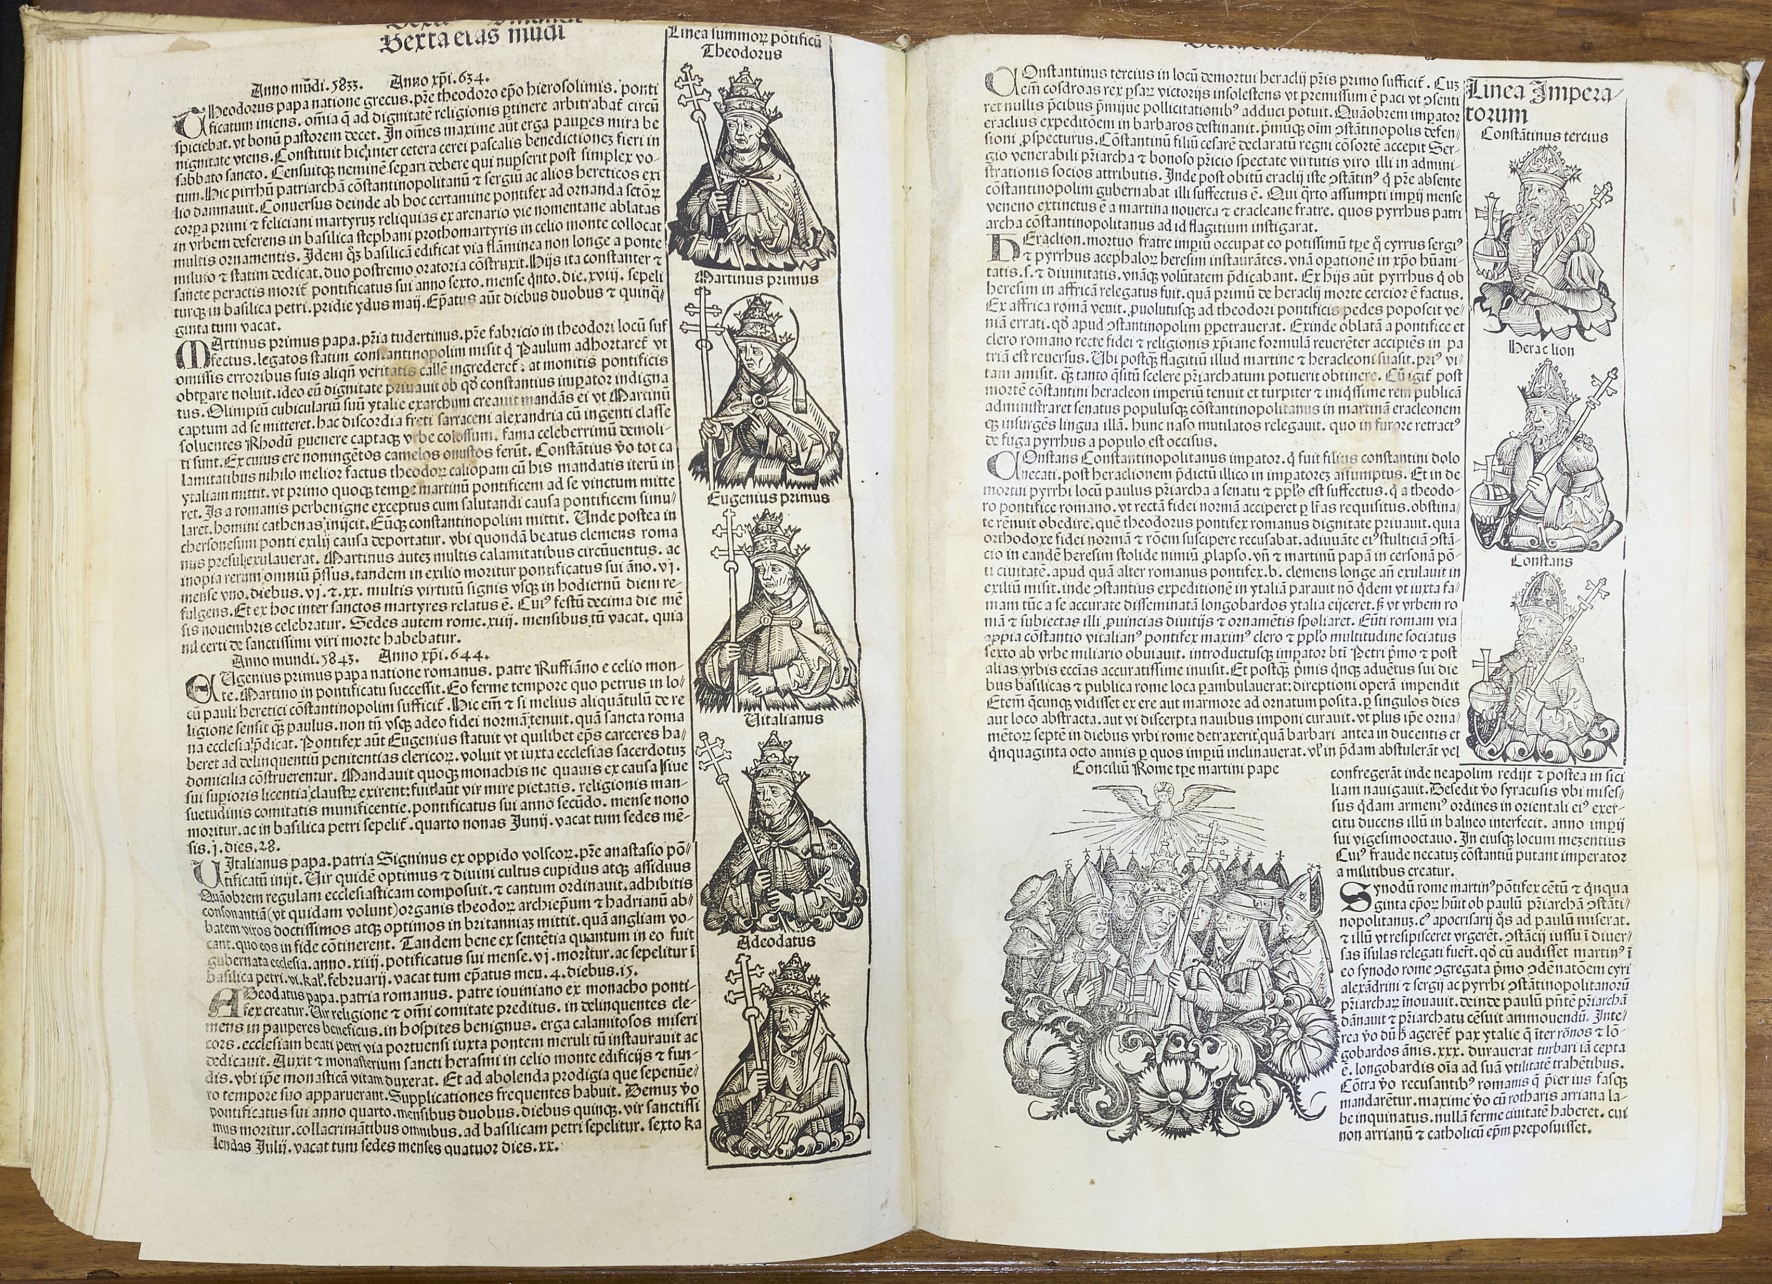 Sexta etas mūdi
Linea summoꝝ pōtificū
Theodorus
Anno mūdi. 5833. Anno xp̄i. 634.
THeodorus papa natione grecus. p̄re theodoro ep̄o hierosolimis. ponti
ficatum iniens. om̄ia q̄ ad dignitatē religionis ꝑtinere arbitrabat̄ circū
spiciebat. vt bonū pastorem decet. In om̄es maxime aūt erga paupes mira be
nignitate vtens. Constituit hic inter cetera cerei pascalis benedictionez fieri in
sabbato sancto. Censuitqꝫ neminē separi debere qui nupserit post simplex vo-
tum. Hic pirrhū patriarcham cōstantinopolitanū ⁊ sergiū ac alios hereticos exi
lio damnauit. Conuersus deinde ab hoc certamine pontifex ad ornanda sctōꝝ
corpa primi ⁊ feliciani martyruꝫ reliquias ex arenario vie nomentane ablatas
in vrbem deferens in basilica stephani prothomartyris in celio monte collocat
multis ornamentis. Idem qꝫ basilicā edificat via flāminea non longe a ponte
miluio ⁊ statim dedicat. duo postremo oratoria cōstruxit. Hijs ita constanter ⁊
sancte peractis morit̄ pontificatus sui anno sexto. mense qn̄to. die. xviij. sepeli
turqꝫ in basilica petri. pridie ydus maij. Ep̄atus aūt diebus duobus ⁊ quinq̄/
ginta tum vacat.
Martinus primus
MArtinus primus papa. p̄ria tudertinus. p̄re fabricio in theodori locū suf
fectus. legatos statim constantinopolim misit q̄ Paulum adhortaret̄ vt
omissis erroribus suis aliqn̄ veritatis callē ingrederet̄. at monitis pontificis
obtꝑare noluit. ideo eū dignitate priuauit ob qd̄ constantius imꝑator indigna
tus. Olimpiū cubiculariū suū ytalie exarchum creauit mandās ei vt Martinū
captum ad se mitteret. hac discordia freti sarraceni alexandria cū ingenti classe
soluentes Rhodū ꝑuenere captaqꝫ vrbe colossum. fama celeberrimū demoli-
ti sunt. Ex cuius ere noningētos camelos onustos ferūt. Constātius v̄o tot ca
lamitatibus nihilo melior factus theodoꝝ caliopam cū his mandatis iterū in
ytaliam mittit. vt primo quoqꝫ temꝑe martinū pontificem ad se vinctum mitte
ret. Is a romanis perbenigne exceptus cum salutandi causa pontificem simu/
laret. homini cathenas inijcit. Eūqꝫ constantinopolim mittit. Unde postea in
chersonesum ponti exilij causa deportatur. vbi quondā beatus clemens roma
nus presul exulauerat. Martinus autez multis calamitatibus circūuentus. ac
inopia rerum omniū p̄ssus. tandem in exilio moritur pontificatus sui āno. vj.
mense vno. diebus. vj. ⁊. xx. multis virtutū signis vsqꝫ in hodiernū diem re-
fulgens. Et ex hoc inter sanctos martyres relatus ē. Cui⁹ festū decima die mē
sis nouembris celebratur. Sedes autem rome. xiiij. mensibus tū vacat. quia
nil certi de sanctissimi viri morte habebatur.
Eugenius primus
Anno mundi. 5843. Anno xp̄i. 644.
EUgenius primus papa natione romanus. patre Ruffiāno e celio mon-
te. Martino in pontificatu successit. Eo ferme tempore quo petrus in lo/
cū pauli heretici cōstantinopolim sufficit̄. Hic em̄ ⁊ si melius aliquātulū de re
ligione sensit qꝫ paulus. non tn̄ vsqꝫ adeo fidei normā tenuit. quā sancta roma
na ecclesia p̄dicat. Pontifex aūt Eugenius statuit vt quilibet ep̄s carceres ha/
beret ad delinquentiū penitentias clericoꝝ. voluit vt iuxta ecclesias sacerdotuꝫ
domicilia cōstruerentur. Mandauit quoqꝫ monachis ne quauis ex causa siue
sui suꝑioris licentia claustꝝ exirent: fuit aūt vir mire pietatis. religionis man-
suetudinis comitatis munificentie. pontificatus sui anno secūdo. mense nono
moritur. ac in basilica petri sepelit̄. quarto nonas Junij. vacat tum sedes mē-
sis. j. dies. 28.
Uitalianus
UItalianus papa. patria Signinus ex oppido volscoꝝ. p̄re anastasio pō-
tificatū inijt. Uir quidē optimus ⁊ diuini cultus cupidus atqꝫ assiduus
Quāobrem regulam ecclesiasticam composuit. ⁊ cantum ordinauit. adhibitis
consonantiā (vt quidam volunt) organis theodoꝝ archiep̄um ⁊ hadrianū ab/
batem viros doctissimos atqꝫ optimos in britanniaꝫ mittit. quā angliam vo-
cant. quo eos in fide cōtinerent. Tandem bene ex sentētia quantum in eo fuit
gubernata ecclesia. anno. xiiij. pontificatus sui mense. vj. moritur. ac sepelitur ī
basilica petri. vi. kaḷ. februarij. vacat tum ep̄atus meñ. 4. diebus. 15.
Adeodatus
ADeodatus papa. patria romanus. patre iouiniano ex monacho ponti-
fex creatur. Uir religione ⁊ om̄i comitate preditus. in delinquentes cle-
mens in pauperes beneficus. in hospites benignus. erga calamitosos miseri
cors. ecclesiam beati petri via portuensi iuxta pontem meruli tū instaurauit ac
dedicauit. Auxit ⁊ monasterium sancti herasmi in celio monte edificijs ⁊ fun-
dis. vbi ip̄e monasticā vitam duxerat. Et ad abolenda prodigia que sepenue/
ro tempore suo apparuerant. Supplicationes frequentes habuit. Demuꝫ v̄o
pontificatus sui anno quarto. mensibus duobus. diebus quinqꝫ. vir sanctissi
mus moritur. collacrimātibus omnibus. ad basilicam petri sepelitur. sexto ka
lendas Julij. vacat tum sedes menses quatuor dies. xx.
Linea Impera/
torum
Constātinus tercius
COnstantinus tercius in locū demortui heraclij p̄ris primo sufficit̄. Cuꝫ
em̄ cosdroas rex ꝑsaꝝ victorijs insolestens vt premissum ē paci vt ꝯsenti
ret nullis p̄cibus p̄miqꝫ pollicitationib⁹ adduci potuit. Quāobrem imꝑator
eraclius expeditōem in barbaros destinanit. p̄muqꝫ oīm ꝯstātinopolis defen/
sioni ꝓspecturus. Cōstantinū filiū cesarē declaratū regni cōsortē accepit Ser-
gio venerabili p̄riarcha ⁊ bonoso p̄ricio spectate virtutis viro illi in admini/
strationis socios attributis. Inde post obitū eraclij iste ꝯstātin⁹ q̄ p̄re absente
cōstantinopolim gubernabat illi suffectus ē. Qui q̄rto assumpti imꝑij mense
veneno extinctus ē a martina nouerca ⁊ eracleane fratre. quos pyrrhus patri
archa cōstantinopolitanus ad id flagitium instigarat.
Heraclion
HEraclion. mortuo fratre imꝑiū occupat eo potissimū tꝑe q̄ cyrrus sergi⁹
⁊ pyrrhus acephaloꝝ heresim instaurātes. vnā opationē in xp̄o hūani
tatis. s. ⁊ diuinitatis. vnāqꝫ volūtatem p̄dicabant. Ex hijs aūt pyrrhus q̄ ob
heresim in affricā relegatus fuit. quā primū de heraclij morte cercior ē factus.
Ex affrica romā venit. ꝓuolutusqꝫ ad theodori pontificis pedes poposcit ve/
niā errati. qd̄ apud ꝯstantinopolim ꝑpetrauerat. Exinde oblatā a pontifice et
clero romano recte fidei ⁊ religionis xp̄iane formulā reuerēter accipiēs in pa
triā est reuersus. Ubi postqꝫ flagitiū illud martine ⁊ heracleoni suasit. pri⁹ vi/
tam amisit. qꝫ tanto q̄sitū scelere p̄riarchatum potuerit obtinere. Cū igit̄ post
mortē cōstantini heracleon imperiū tenuit et turpiter ⁊ iniq̄ssime rem publicā
administraret senatus populusqꝫ cōstantinopolitanus in martinā eracleonem
qꝫ insurgēs lingua illā. hunc naso mutilatos relegauit. quo in furore retract⁹
de fuga pyrrhus a populo est occisus.
Constans
COnstans Constantinopolitanus imꝑator. q̄ fuit filius constantini dolo
necati. post heraclionem p̄dictū illico in imꝑatoreꝫ assumptus. Et in de
mortui pyrrhi locū paulus p̄riarcha a senatu ⁊ pplo est suffectus. q̄ a theodo-
ro pontifice romano. vt rectā fidei normā acciperet ꝑ lr̄as requisitus. obstina/
te rēnuit obedire. quē theodorus pontifex romanus dignitate priuauit. quia
orthodoxe fidei normā ⁊ rōem suscipere recusabat. adiuuāte ei⁹ stulticiā ꝯstā-
cio in eandē heresim stolide nimiū ꝓlapso. vn̄ ⁊ martinū papā in cersonā pō-
ti ciuitatē. apud quā alter romanus pontifex. b. clemens longe añ exulauit in
exiliū misit. inde ꝯstantius expeditionē in ytaliā parauit nō q̄dem vt iuxta fa/
mam tūc a se accurate disseminatā longobardos ytalia eijceret. sꝫ vt vrbem ro
mā ⁊ subiectas illi ꝓuincias diuitijs ⁊ ornamētis spoliaret. Eūti romam via
appia cōstantio vitalian⁹ pontifex maxim⁹ clero ⁊ pplo multitudine sociatus
sexto ab vrbe miliario obuiauit. introductusqꝫ imꝑator btī Petri p̄mo ⁊ post
alias vrbis ecclias accuratissime inuisit. Et postqꝫ p̄mis qn̄qꝫ aduētus sui die
bus basilicas ⁊ publica rome loca ꝑambulauerat: direptioni operā impendit
Etem̄ q̄cunqꝫ vidisset ex ere aut marmore ad ornatum posita. ꝑ singulos dies
aut loco abstracta. aut vi discerpta nauibus imponi curauit. vt plus ip̄e orna/
mētoꝝ septē in diebus vrbi rome detraxerit quā barbari antea in ducentis et
qn̄quaginta octo annis ꝑ quos imꝑiū inclinauerat. vl̄ in p̄dam abstulerāt vel
Conciliū Rome tꝑe martini pape
confregerāt inde neapolim redijt ⁊ postea in sici
liam nauigauit. Desedit v̄o syracusis vbi mises/
sus q̄dam armeni⁹ ordines in orientali ei⁹ exer-
citu ducens illū in balneo interfecit. anno imꝑij
sui vigesimooctauo. In eiusqꝫ locum mezentius
Cui⁹ fraude necatuꝫ cōstantiū putant imperator
a militibus creatur.
SYnodū rome martin⁹ pōtifex cētū ⁊ qn̄qua
ginta ep̄oꝝ hūit ob paulū p̄riarchā ꝯstāti-
nopolitanuꝫ. c⁹ apocrisarij q̄s ad paulū miserat.
⁊ illū vt resipisceret vrgeret. ꝯstācij iussu ī diuer/
sas īsulas relegati fuer̄t. qd̄ cū audisset martin⁹ ī
eo synodo rome ꝯgregata p̄mo ꝯdēnatōem cyri
alexādrini ⁊ sergij ac pyrrhi ꝯstātinopolitanoꝝ
p̄riarchaꝝ īnouauit. deinde paulū p̄ntē p̄riarchā
dānauit ⁊ p̄riarchatu cēsuit ammouendū. Inte/
rea v̄o dū h̄ agerēt̄ pax ytalie q̄ iter rōnos ⁊ lō-
gobardos ānis. xxx. durauerat turbari iā cepta
ē. longobardis oīa ad suā vtilitatē trahētibus.
Cōtra v̄o recusantib⁹ romanis q̄ p̄ier ius fasqꝫ
mandarētur. maxime v̄o cū rotharis arriana la-
be inquinatus. nullā ferme ciuitatē haberet. cui
non arrianū ⁊ catholicū ep̄m preposuisset.